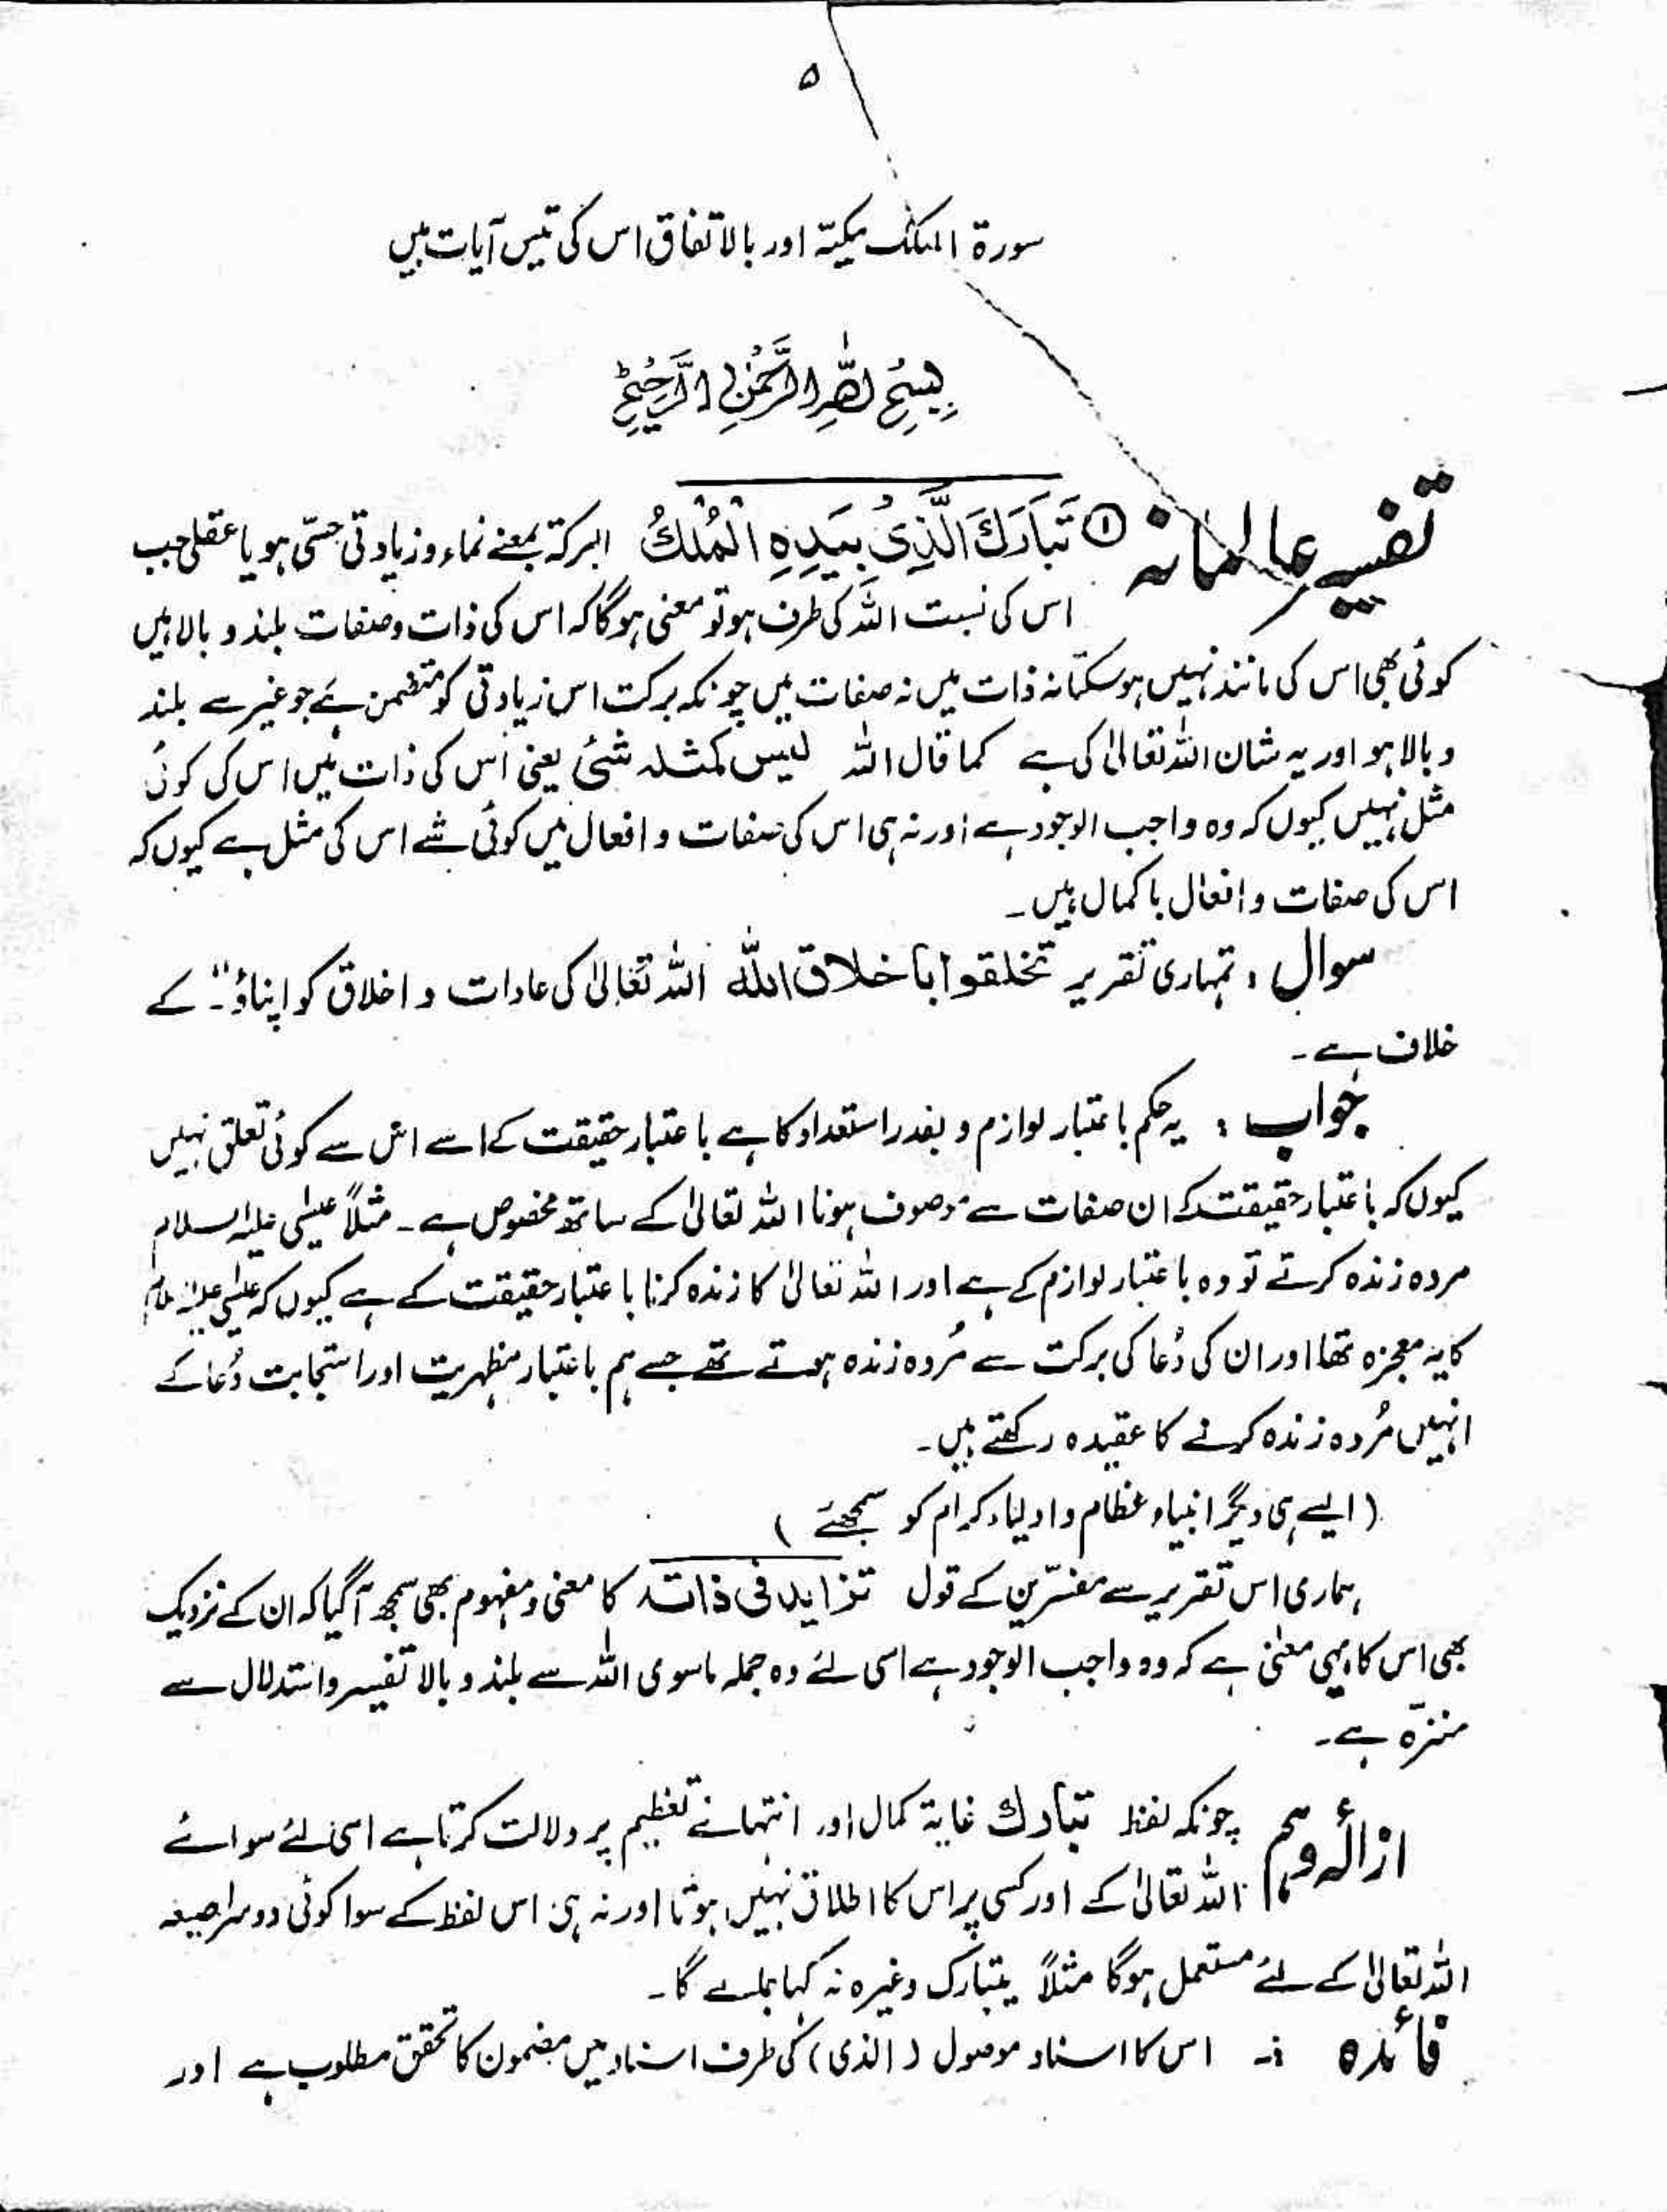 ۵
سورۃ الملک مکیۃ اور بالاتفاق اس کی تیس آیات ہیں
بِسْمِ اللّٰهِ الرَّحْمٰنِ الرَّحِيْمِ
تفسیر عالمانہ ① تَبَارَكَ الَّذِیْ بِيَدِهِ الْمُلْكُ البرکۃ بمعنے نماء و زیادتی حسّی ہو یا عقلی جب
اس کی نسبت اللہ کی طرف ہو تو معنی ہوگا کہ اس کی ذات و صفات بلند و بالا ہیں
کوئی بھی اس کی مانند نہیں ہو سکتا نہ ذات میں نہ صفات میں چونکہ برکت اس زیادتی کو متضمن ہے جو غیر سے بلند
و بالا ہو اور یہ شان اللہ تعالیٰ کی ہے کما قال اللہ لیس کمثلہ شئ یعنی اس کی ذات میں اس کی کوئی
مثل نہیں کیوں کہ وہ واجب الوجود ہے اور نہ ہی اس کی صفات و افعال میں کوئی شے اس کی مثل ہے کیوں کہ
اس کی صفات و افعال باکمال ہیں۔
سوال : تمہاری تقریر تخلقوا باخلاق اللہ اللہ تعالیٰ کی عادات و اخلاق کو اپناؤ"۔ کے
خلاف ہے۔
جواب : یہ حکم باعتبار لوازم و بقدر استعداد کا ہے باعتبار حقیقت کے اسے اس سے کوئی تعلق نہیں
کیوں کہ باعتبار حقیقت کے ان صفات سے موصوف ہونا اللہ تعالیٰ کے ساتھ مخصوص ہے۔ مثلاً عیسٰی علیہ السلام
مردہ زندہ کرتے تو وہ باعتبار لوازم کے ہے اور اللہ تعالیٰ کا زندہ کرنا باعتبار حقیقت کے ہے کیوں کہ عیسٰی علیہ السلام
کا یہ معجزہ تھا اور ان کی دُعا کی برکت سے مُردہ زندہ ہوتے تھے جسے ہم باعتبار مظہریت اور استجابت دُعا کے
انہیں مُردہ زندہ کرنے کا عقیدہ رکھتے ہیں۔
(ایسے ہی دیگر انبیاء عظام و اولیاء کرام کو سمجھئے)
ہماری اس تقریر سے مفسّرین کے قول تزاید فی ذاتہ کا معنی و مفہوم بھی سمجھ آ گیا کہ ان کے نزدیک
بھی اس کا یہی معنٰی ہے کہ وہ واجب الوجود ہے اسی لئے وہ جملہ ماسوی اللہ سے بلند و بالا تفسیر و استدلال سے
منزّہ ہے۔
ازالۂ وہم چونکہ لفظ تبارك غایۃ کمال اور انتہائے تعظیم پر دلالت کرتا ہے اسی لئے سوائے
اللہ تعالیٰ کے اور کسی پر اس کا اطلاق نہیں ہوتا اور نہ ہی اس لفظ کے سوا کوئی دوسرا صیغہ
اللہ تعالیٰ کے لئے مستعمل ہوگا مثلاً یتبارک وغیرہ نہ کہا جائے گا۔
فائدہ :۔ اس کا اسناد موصول (الذی) کی طرف اسناد میں مضمون کا تحقق مطلوب ہے اور